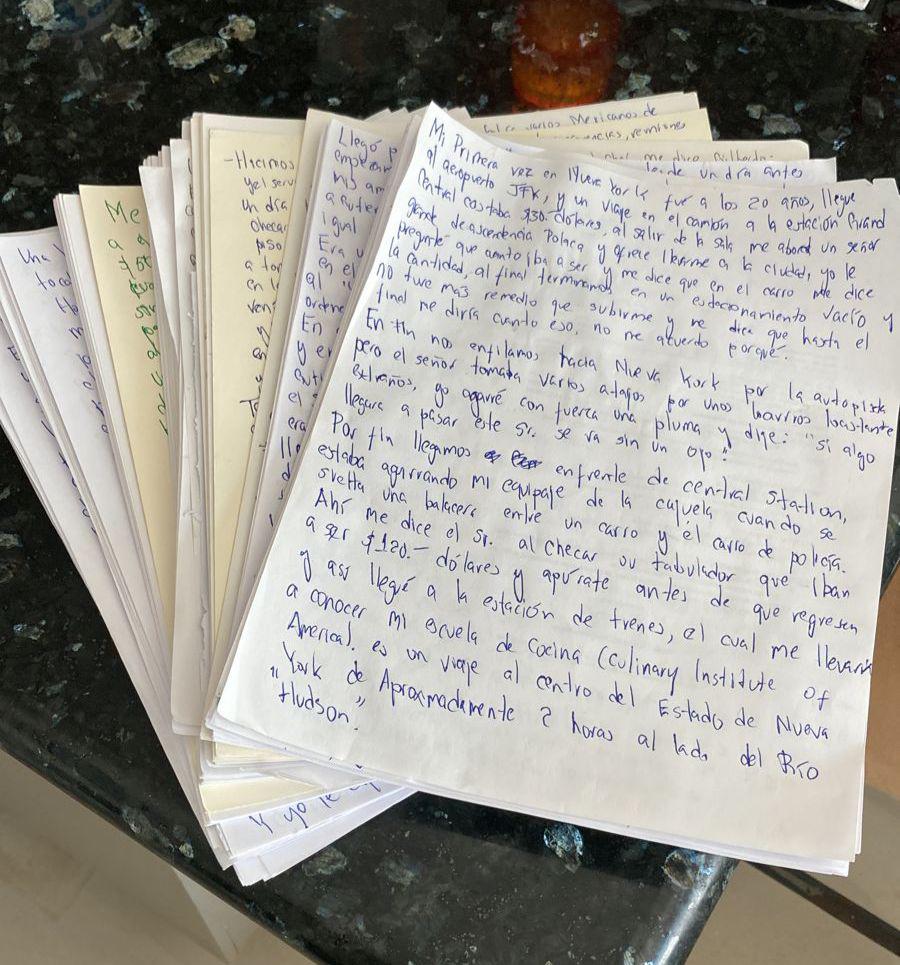 Mi Primera vez en Nueva York fue a los 20 años, llegue
al aeropuerto JFK, y un viaje en el camión a la estación Grand
Central costaba $30. dolares, al salir de la sala me abordó un señor
grande de ascendencia Polaca y ofrece llevarme a la ciudad, yo le
pregunte que cuanto iba a ser y me dice que en el carro me dice
la cantidad, al final terminando en un estacionamiento vacío y
no tuve mas remedio que subirme y me dice que hasta el
final me diría cuanto eso, no me acuerdo porqué.
En fin nos enfilamos hacia Nueva York por la autopista
pero el señor tomaba varios atajos por unos barrios bastante
extraños, yo agarré con fuerza una pluma y dije: "si algo
llegara a pasar este sr. se va sin un ojo"
Por fin llegamos enfrente de central Station,
estaba agarrando mi equipaje de la cajuela cuando se
suelta una balacera entre un carro y él carro de policía.
Ahí me dice el sr. al checar su tabulador que iban
a ser $120.- dólares y apúrate antes de que regresen
y así llegué a la estación de trenes, el cual me llevaría
a conocer mi escuela de Cocina (Culinary Institute of
America). es un viaje al centro del Estado de Nueva
York de Aproximadamente 2 horas al lado del Río
"Hudson".
varios Mexicanos de
reuniones
me dice
un día antes
Llegó p
mis am
igual
Era u
en el
al
ordene
En
y e
el
era
-Hicimos
y el serv
un día
checa
piso
a to
en l
ven
y
en
Me
a
Una
y yo le